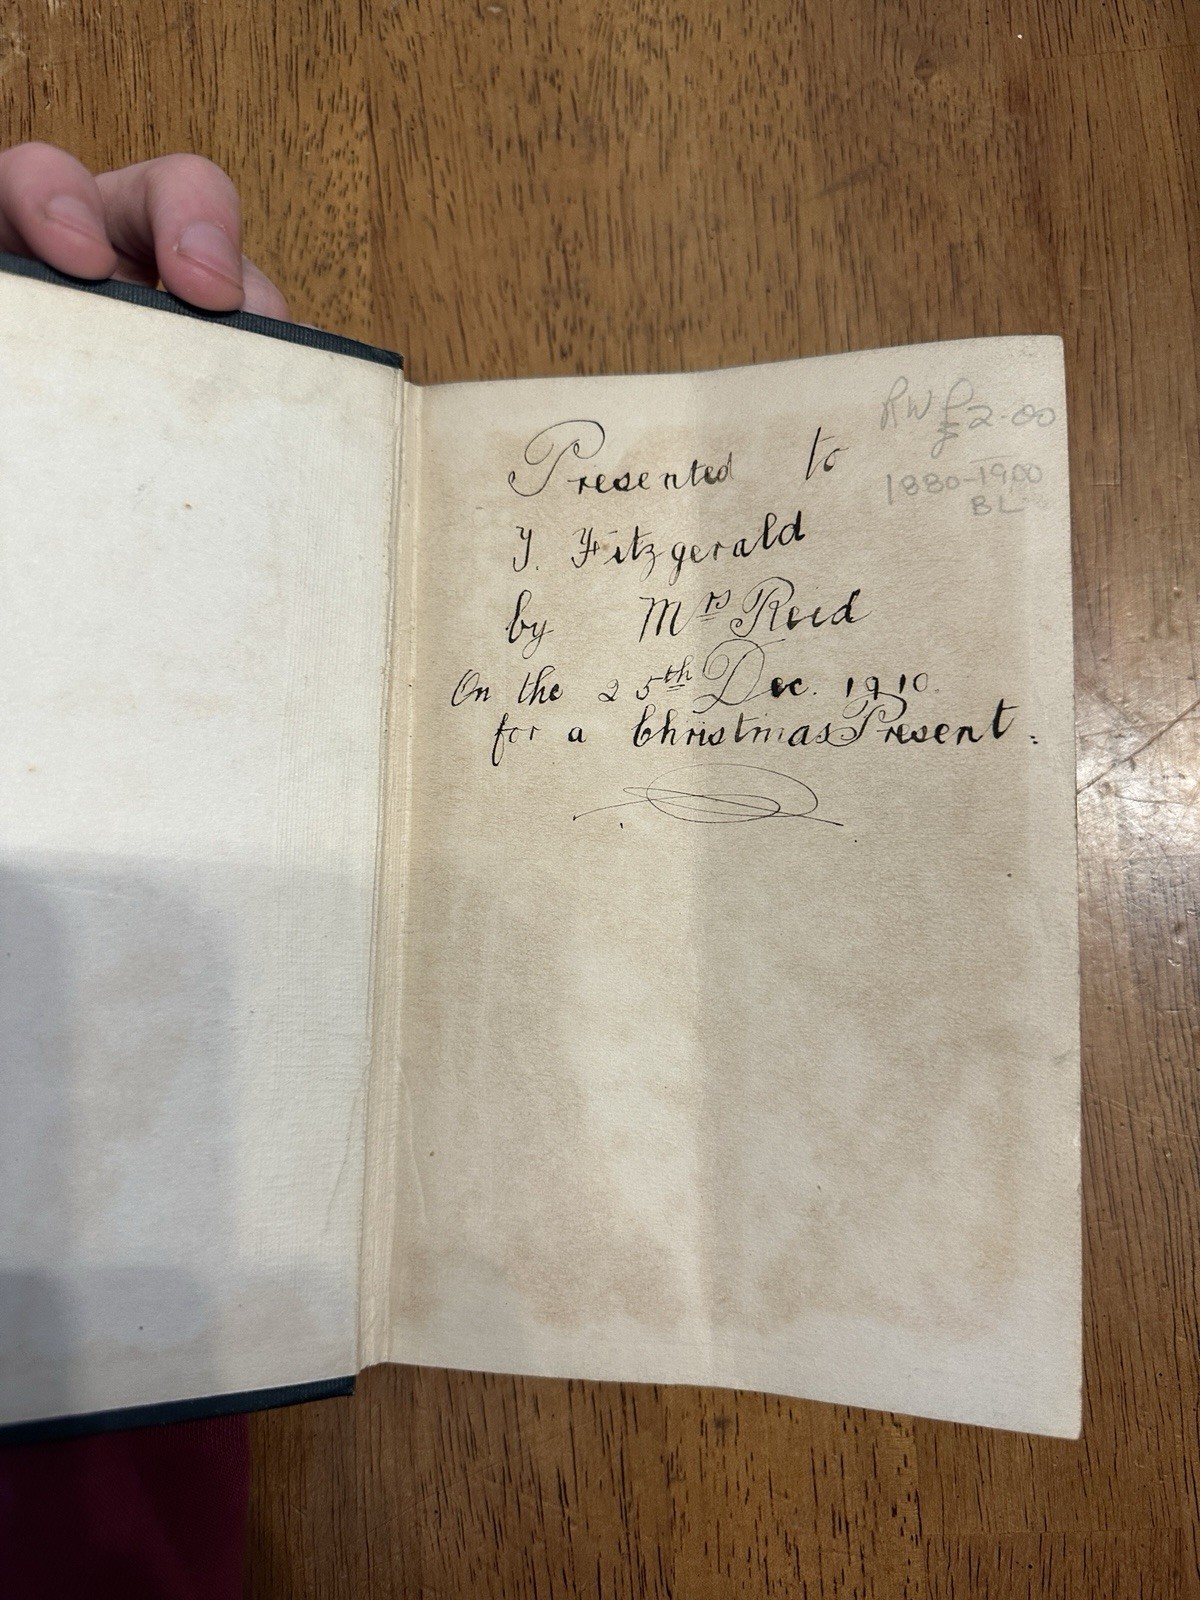 Presented to
J. Fitzgerald
by Mrs Reid
On the 25th Dec. 1910.
for a Christmas Present.
RW £2-00
1880-1900
BL